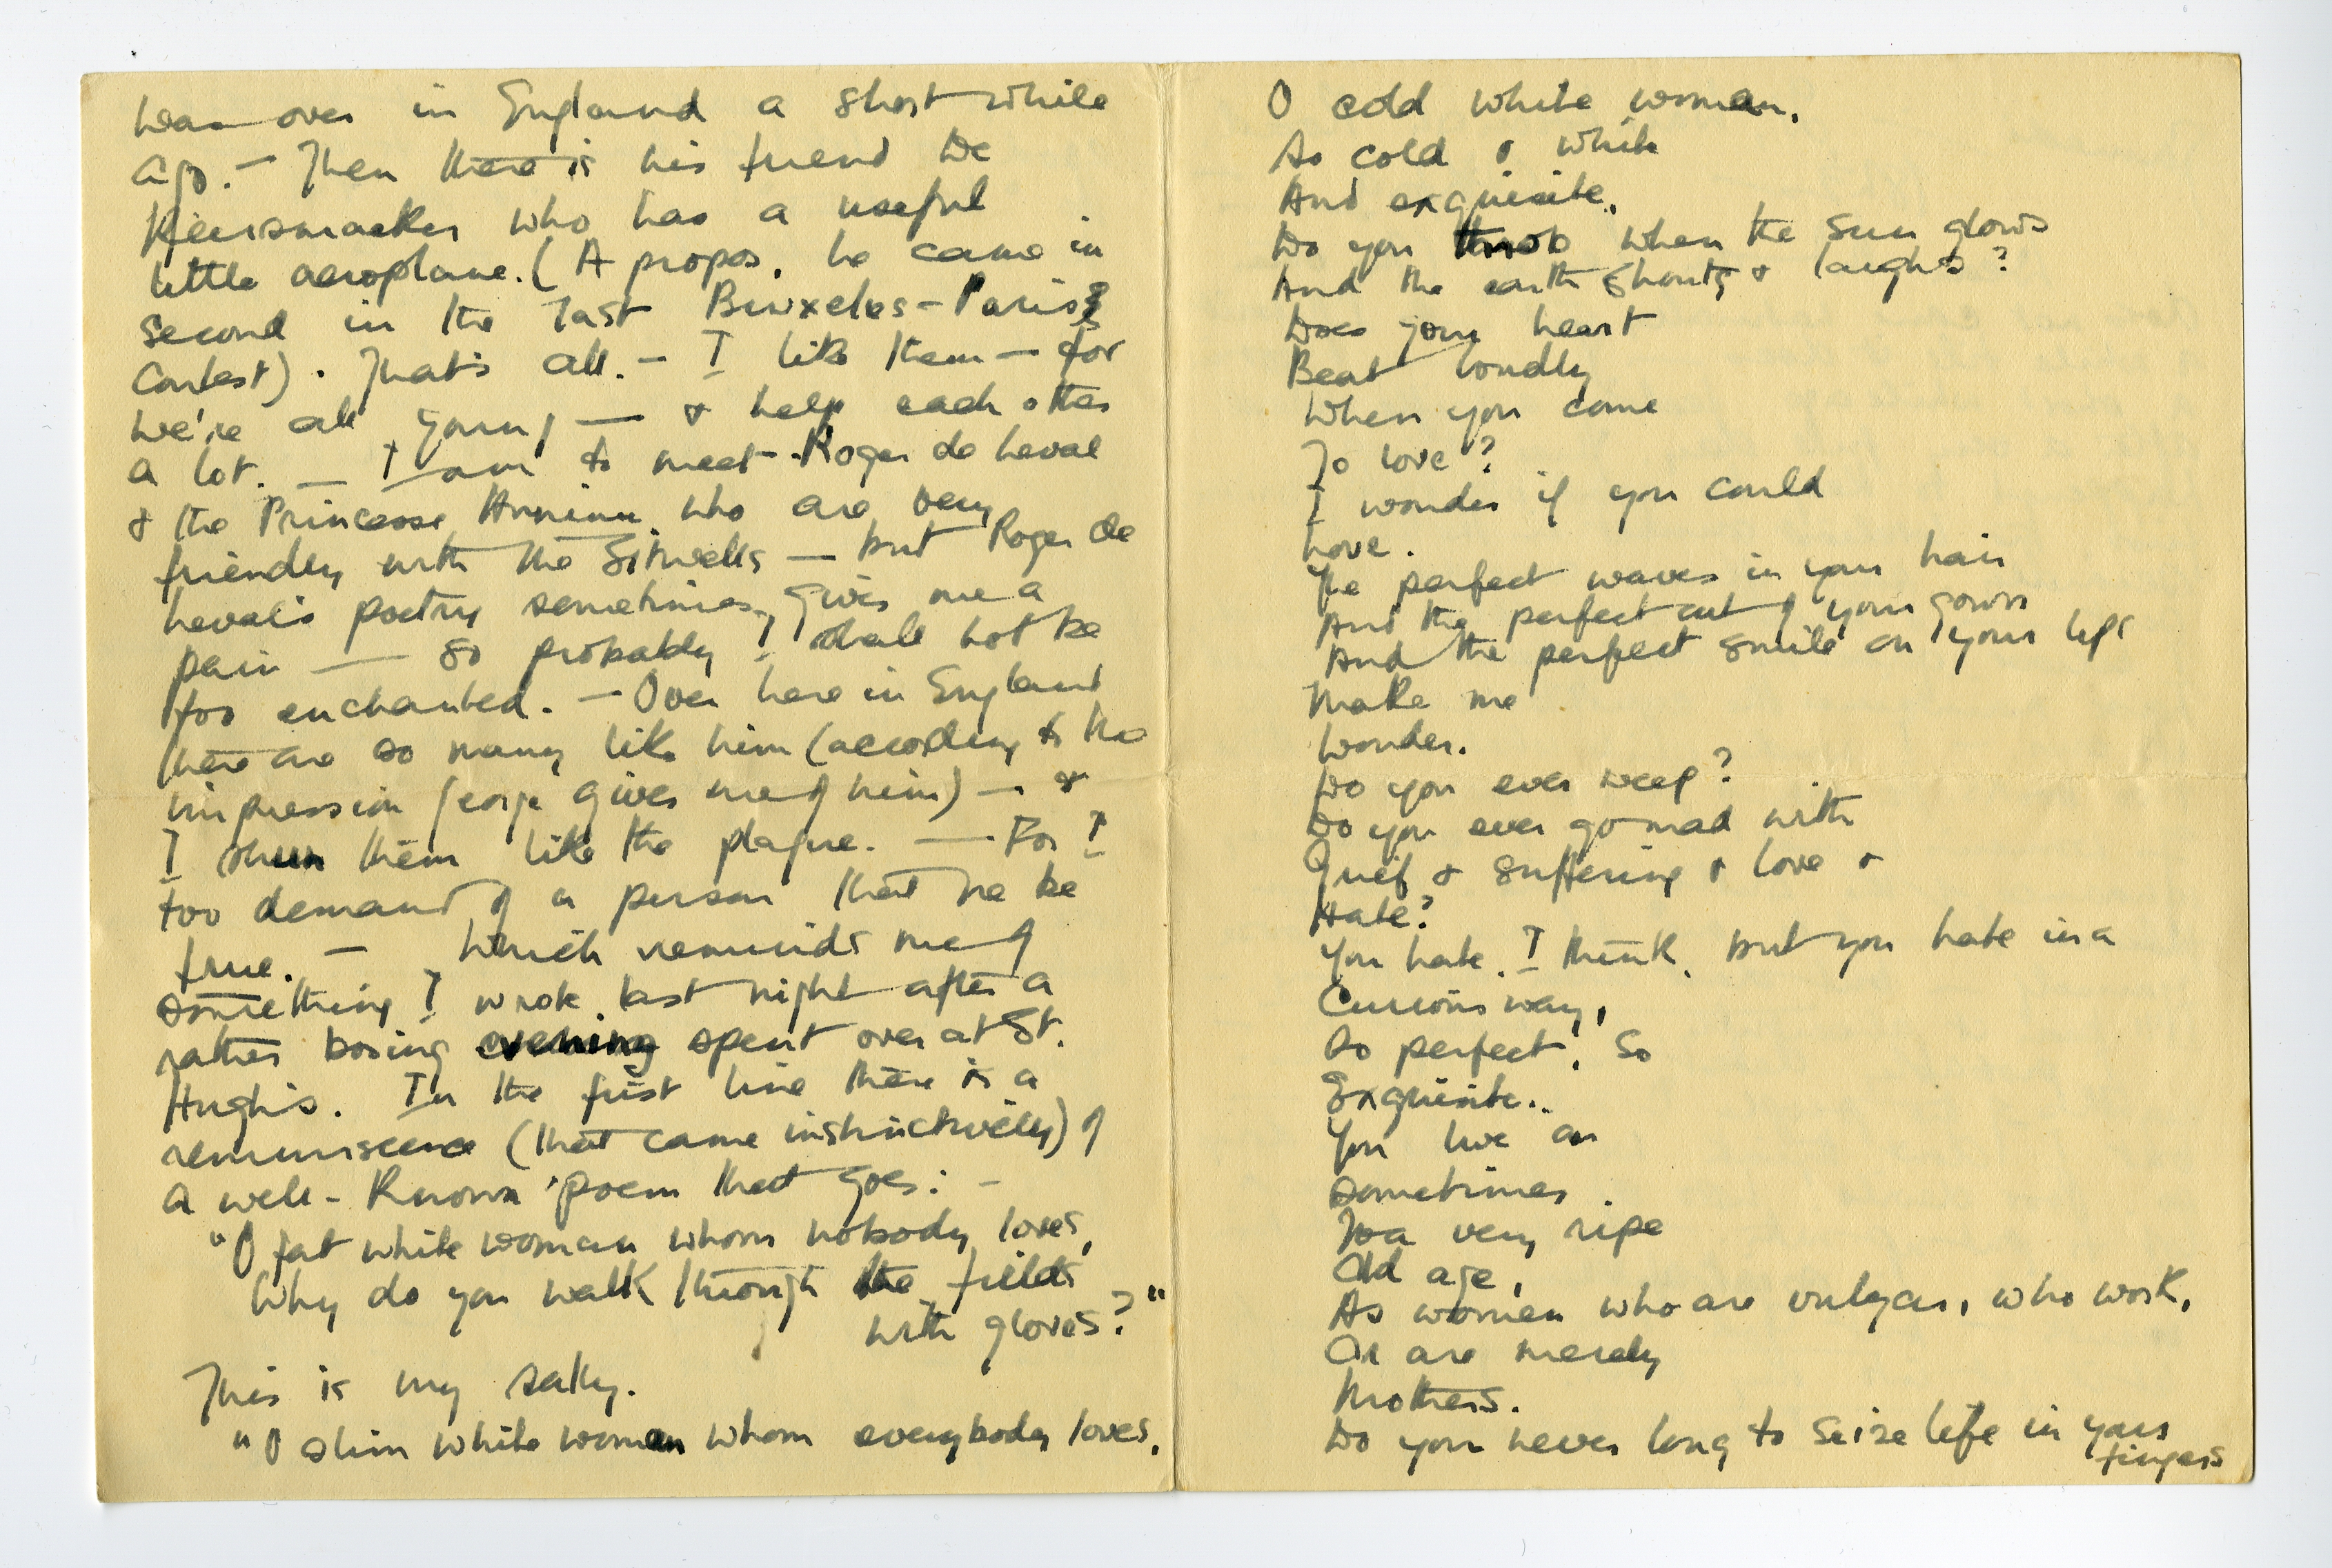 was over in England a short while
ago. — Then there is his friend De
Keersmaeker who has a useful
little aeroplane. (A propos, he came in
second in the last Bruxelles - Paris
contest). That's all. — I like them — for
we're all young — & help each other
a lot. — I am to meet Roger de Leval
& the Princesse who are very
friendly with the Sitwells — but Roger de
Leval's poetry sometimes gives me a
pain — so probably I shall not be
too enchanted. — Over here in England
there are so many like him (according to the
impression George gives me of him) — &
I shun them like the plague. — For I
too demand of a person that he be
true. — Which reminds me of
something I wrote last night after a
rather boring evening spent over at St.
Hugh's. In the first line there is a
reminiscence (that came instinctively) of
a well-known poem that goes: -
"O fat white woman whom nobody loves,
Why do you walk through the fields
with gloves?"
This is my sally.
"O slim white woman whom everybody loves,
O cold white woman,
So cold & white
And exquisite,
Do you throb when the sun glows
And the earth shouts & laughs?
Does your heart
Beat loudly
When you come
To love?
I wonder if you could
Love.
The perfect waves in your hair
And the perfect cut of your gown
And the perfect smile on your lips
Make me
Wonder.
Do you ever weep?
Do you ever go mad with
Grief & suffering & love &
Hate?
You hate, I think, but you hate in a
Curious way,
So perfect, so
Exquisite..
You live on
Sometimes
To a very ripe
Old age,
As women who are vulgar, who work,
Or are merely
Mothers.
Do you never long to seize life in your
fingers